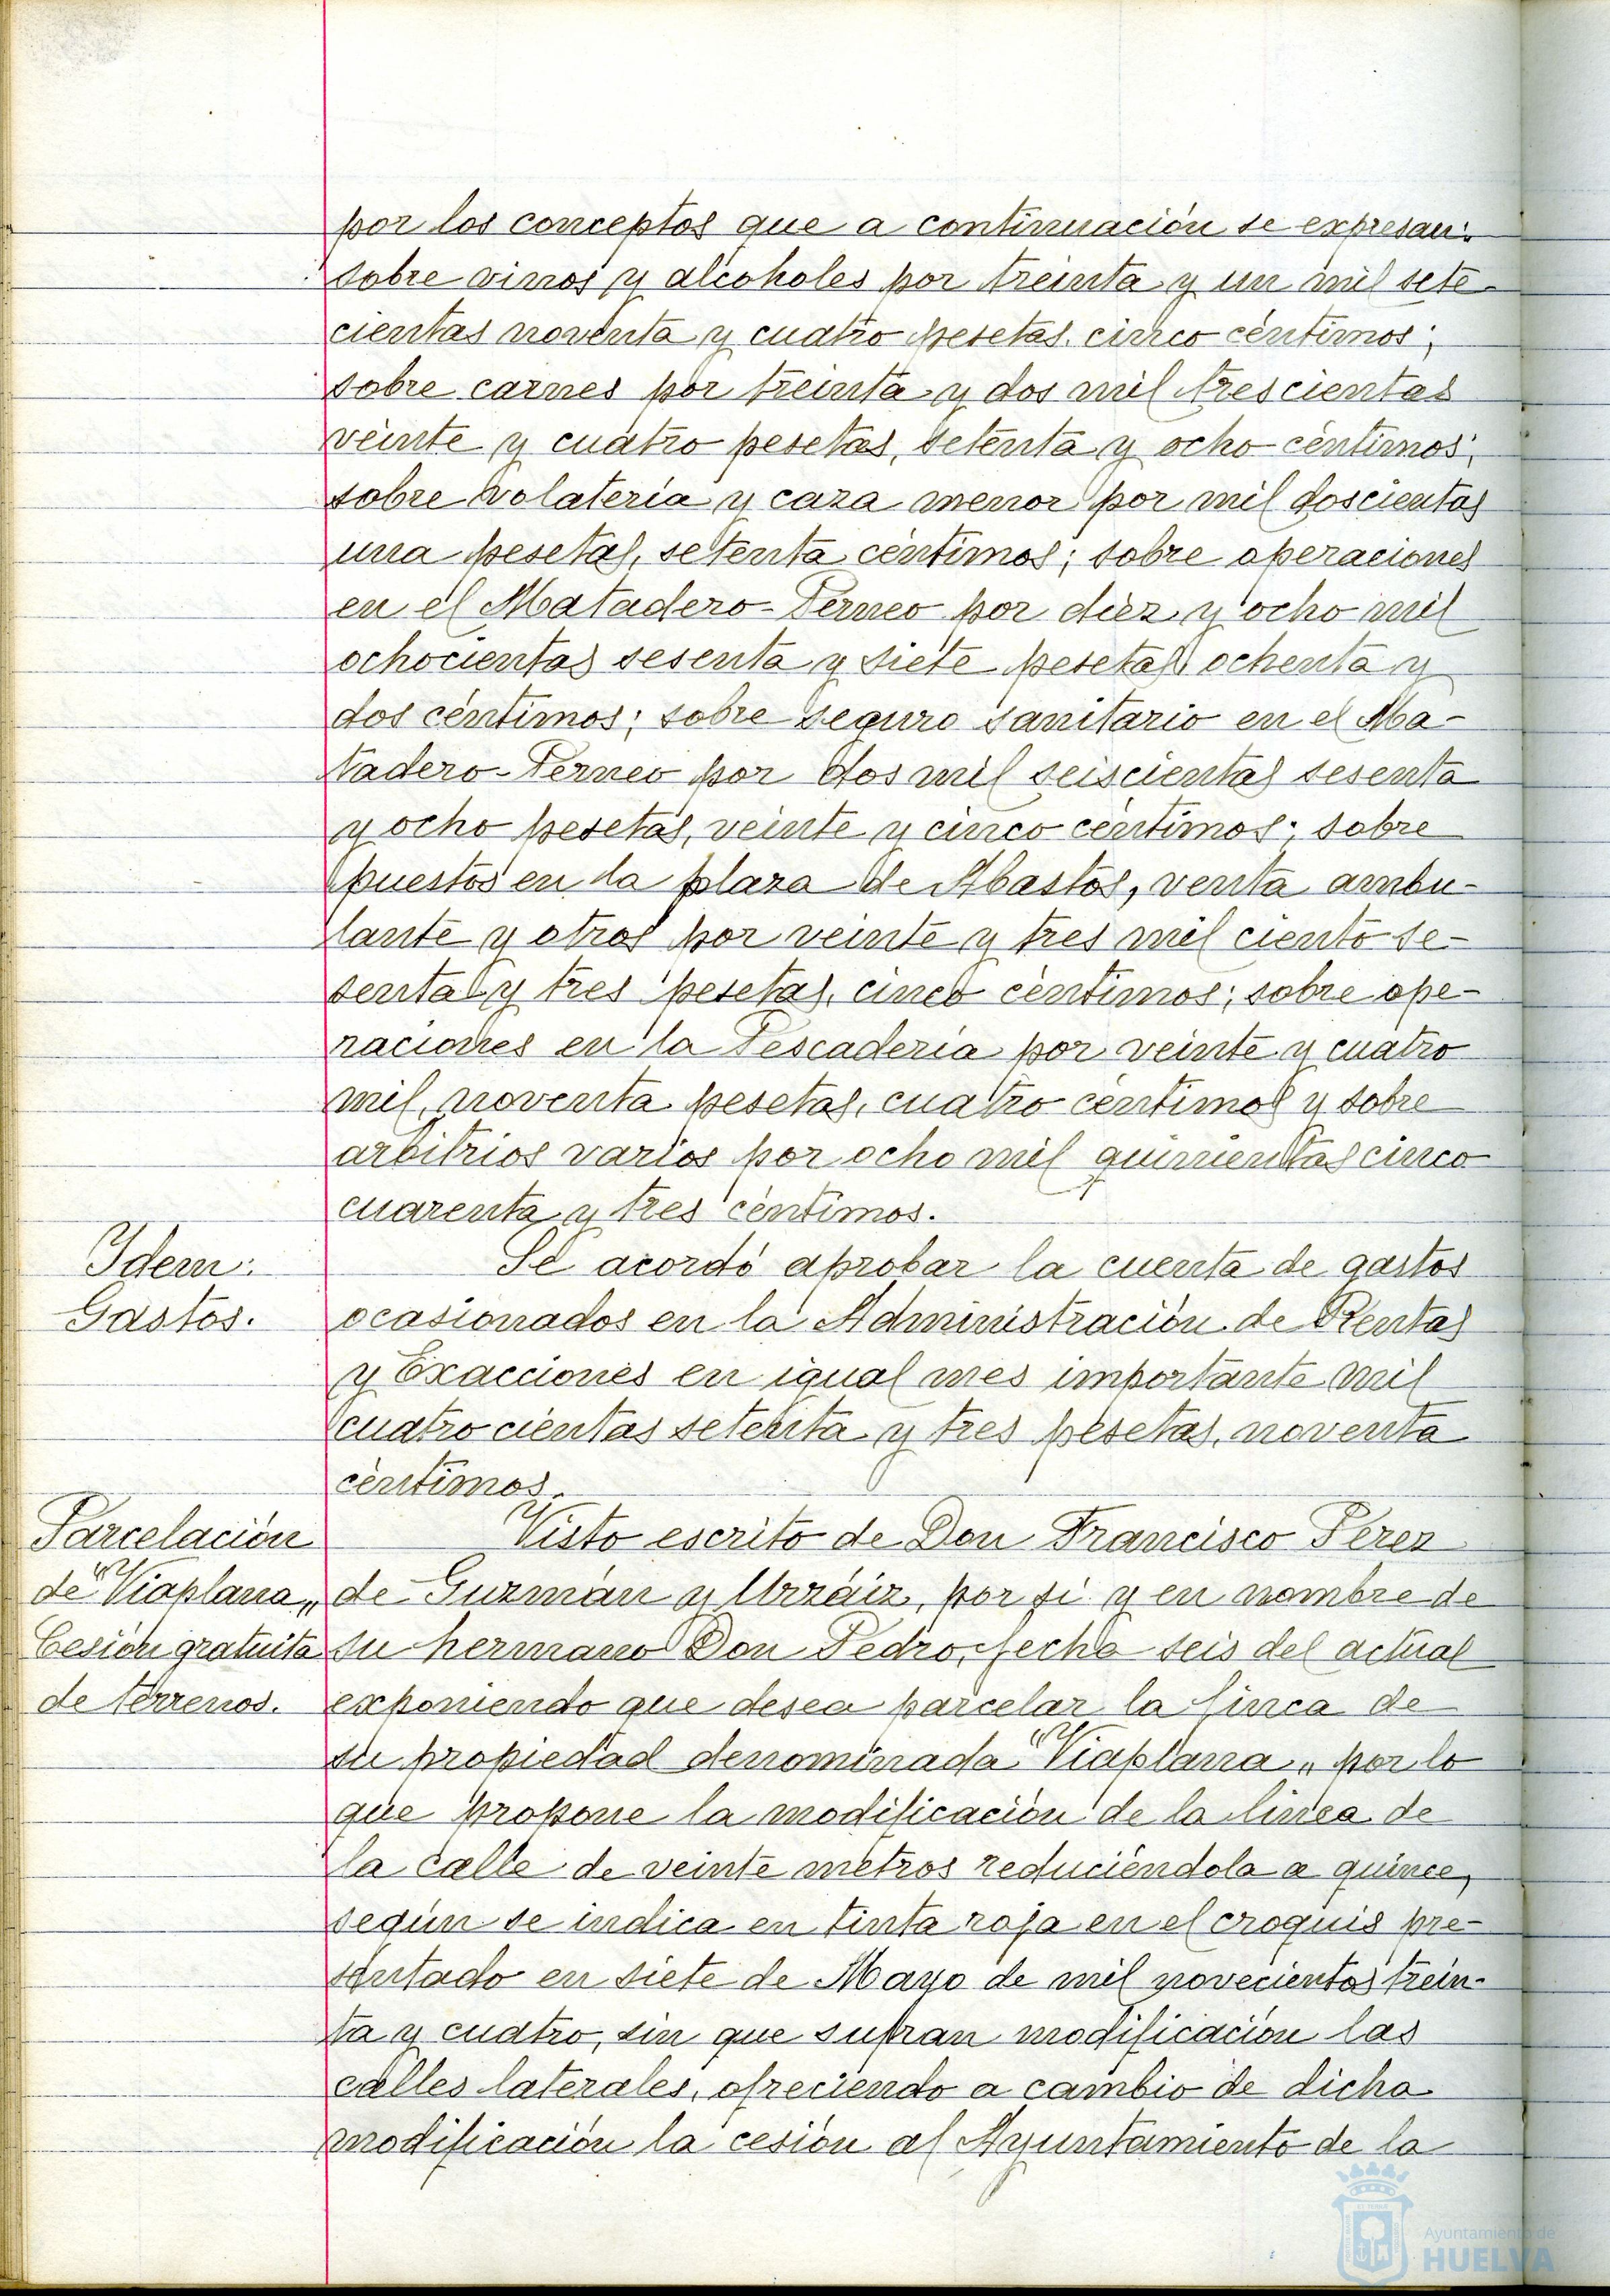 por los conceptos que a continuación se expresan:
sobre vinos y alcoholes por treinta y un mil sete-
cientas noventa y cuatro pesetas, cinco céntimos;
sobre carnes por treinta y dos mil trescientas
veinte y cuatro pesetas, setenta y ocho céntimos;
sobre volatería y caza menor por mil doscientas
una pesetas, setenta céntimos; sobre operaciones
en el Matadero-Perneo por diez y ocho mil
ochocientas sesenta y siete pesetas ochenta y
dos céntimos; sobre seguro sanitario en el Ma-
tadero-Perneo por dos mil seiscientas sesenta
y ocho pesetas, veinte y cinco céntimos; sobre
puestos en la plaza de Abastos, venta ambu-
lante y otros por veinte y tres mil ciento se-
senta y tres pesetas, cinco céntimos; sobre ope-
raciones en la Pescadería por veinte y cuatro
mil, noventa pesetas, cuatro céntimos y sobre
arbitrios varios por ocho mil quinientas cinco
cuarenta y tres céntimos.
Idem:
Gastos.
Se acordó aprobar la cuenta de gastos
ocasionados en la Administración de Rentas
y Exacciones en igual mes importante mil
cuatrocientas setenta y tres pesetas, noventa
céntimos.
Parcelación
de "Viaplana"
Cesión gratuita
de terrenos.
Visto escrito de Don Francisco Perez
de Guzmán y Urzáiz, por si y en nombre de
su hermano Don Pedro, fecha seis del actual
exponiendo que desea parcelar la finca de
su propiedad denominada "Viaplana" por lo
que propone la modificación de la linea de
la calle de veinte metros reduciéndola a quince,
según se indica en tinta roja en el croquis pre-
sentado en siete de Mayo de mil novecientos trein-
ta y cuatro, sin que sufran modificación las
calles laterales, ofreciendo a cambio de dicha
modificación la cesión al Ayuntamiento de la
Ayuntamiento de
HUELVA